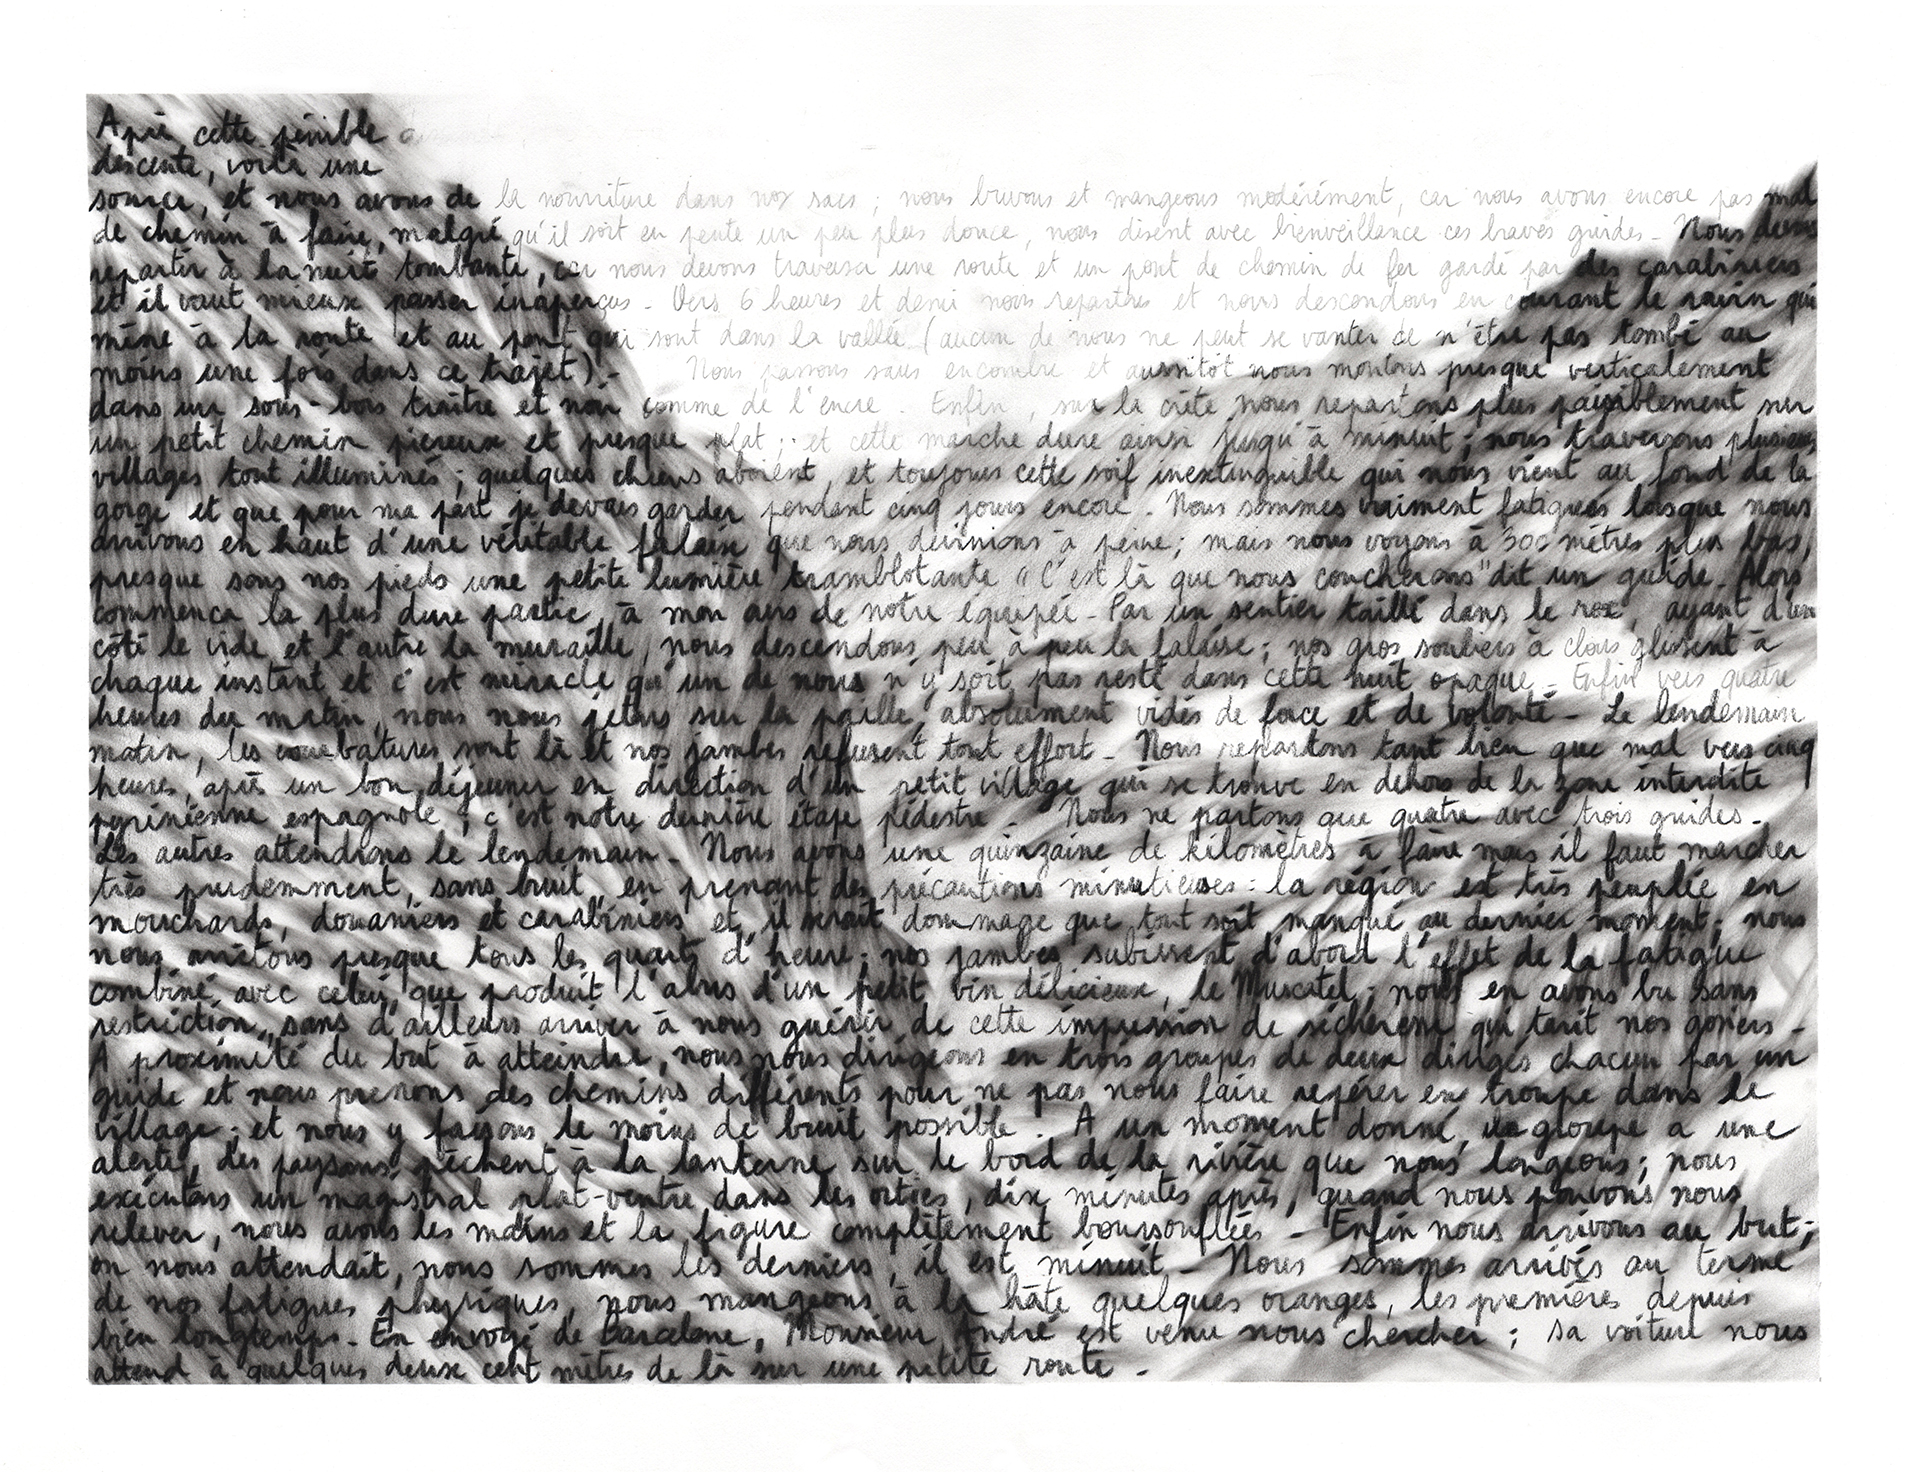 Après cette pénible
descente, voilà une
source, et nous avons de la nourriture dans nos sacs ; nous buvons et mangeons modérément, car nous avons encore pas mal
de chemin à faire, malgré qu'il soit en pente un peu plus douce, nous disent avec bienveillance ces braves guides - Nous devons
repartir à la nuit tombante, car nous devons traverser une route et un pont de chemin de fer gardé par des carabiniers
et il vaut mieux passer inaperçus - Vers 6 heures et demi nous repartons et nous descendons en courant le ravin qui
mène à la route et au pont qui sont dans la vallée (aucun de nous ne peut se vanter de n'être pas tombé au
moins une fois dans ce trajet) - Nous passons sans encombre et aussitôt nous montons presque verticalement
dans un sous-bois traître et noir comme de l'encre - Enfin, sur la crête nous repartons plus paisiblement sur
un petit chemin pierreux et presque plat ; et cette marche dure ainsi jusqu'à minuit ; nous traversons plusieurs
villages tout illuminés ; quelques chiens aboient, et toujours cette soif inextinguible qui nous vient au fond de la
gorge et que pour ma part je devais garder pendant cinq jours encore - Nous sommes vraiment fatigués lorsque nous
arrivons en haut d'une véritable falaise que nous devinions à peine ; mais nous voyons à 300 mètres plus bas,
presque sous nos pieds une petite lumière tramblotante "C'est là que nous coucherons" dit un guide - Alors
commença la plus dure partie, à mon avis de notre équipée - Par un sentier taillé dans le roc, ayant d'un
côté le vide et l'autre la muraille, nous descendons peu à peu la falaise ; nos gros souliers à clous glissent à
chaque instant et c'est miracle qu'un de nous n'y soit pas resté dans cette nuit opaque - Enfin vers quatre
heures du matin, nous nous jetons sur la paille, absolument vidés de force et de volonté - Le lendemain
matin, les courbatures sont là et nos jambes refusent tout effort - Nous repartons tant bien que mal vers cinq
heures, après un bon déjeuner en direction d'un petit village qui se trouve en dehors de la zone interdite
pyrénienne espagnole ; c'est notre dernière étape pédestre - Nous ne partons que quatre avec trois guides -
Les autres attendrons le lendemain - Nous avons une quinzaine de kilomètres à faire mais il faut marcher
très prudemment, sans bruit, en prenant des précautions minutieuses : la région est très peuplée en
mouchards, douaniers et carabiniers et il serait dommage que tout soit manqué au dernier moment ; nous
nous arrêtons presque tous les quarts d'heure ; nos jambes subissent d'abord l'effet de la fatigue
combiné, avec celui, que produit l'abus d'un petit vin délicieux, le Muscatel ; nous en avons bu sans
restriction, sans d'ailleurs arriver à nous guérir de cette impression de sécheresse qui tarit nos gosiers -
A proximité du but à atteindre, nous nous dirigeons en trois groupes de deux dirigés chacun par un
guide et nous prenons des chemins différents pour ne pas nous faire repérer en troupe dans le
village ; et nous y faisons le moins de bruit possible. A un moment donné, le groupe a une
alerte, des paysans pêchent à la lanterne sur le bord de la rivière que nous longeons ; nous
exécutons un magistral plat-ventre dans les orties, dix minutes après, quand nous pouvons nous
relever, nous avons les mains et la figure complètement boursouflées - Enfin nous arrivons au but ;
on nous attendait, nous sommes les derniers, il est minuit - Nous sommes arrivés au terme
de nos fatigues physiques, nous mangeons à la hâte quelques oranges, les premières depuis
bien longtemps - Un envoyé de Barcelone, Monsieur André est venu nous chercher ; sa voiture nous
attend à quelques deux cent mètres de là sur une petite route -